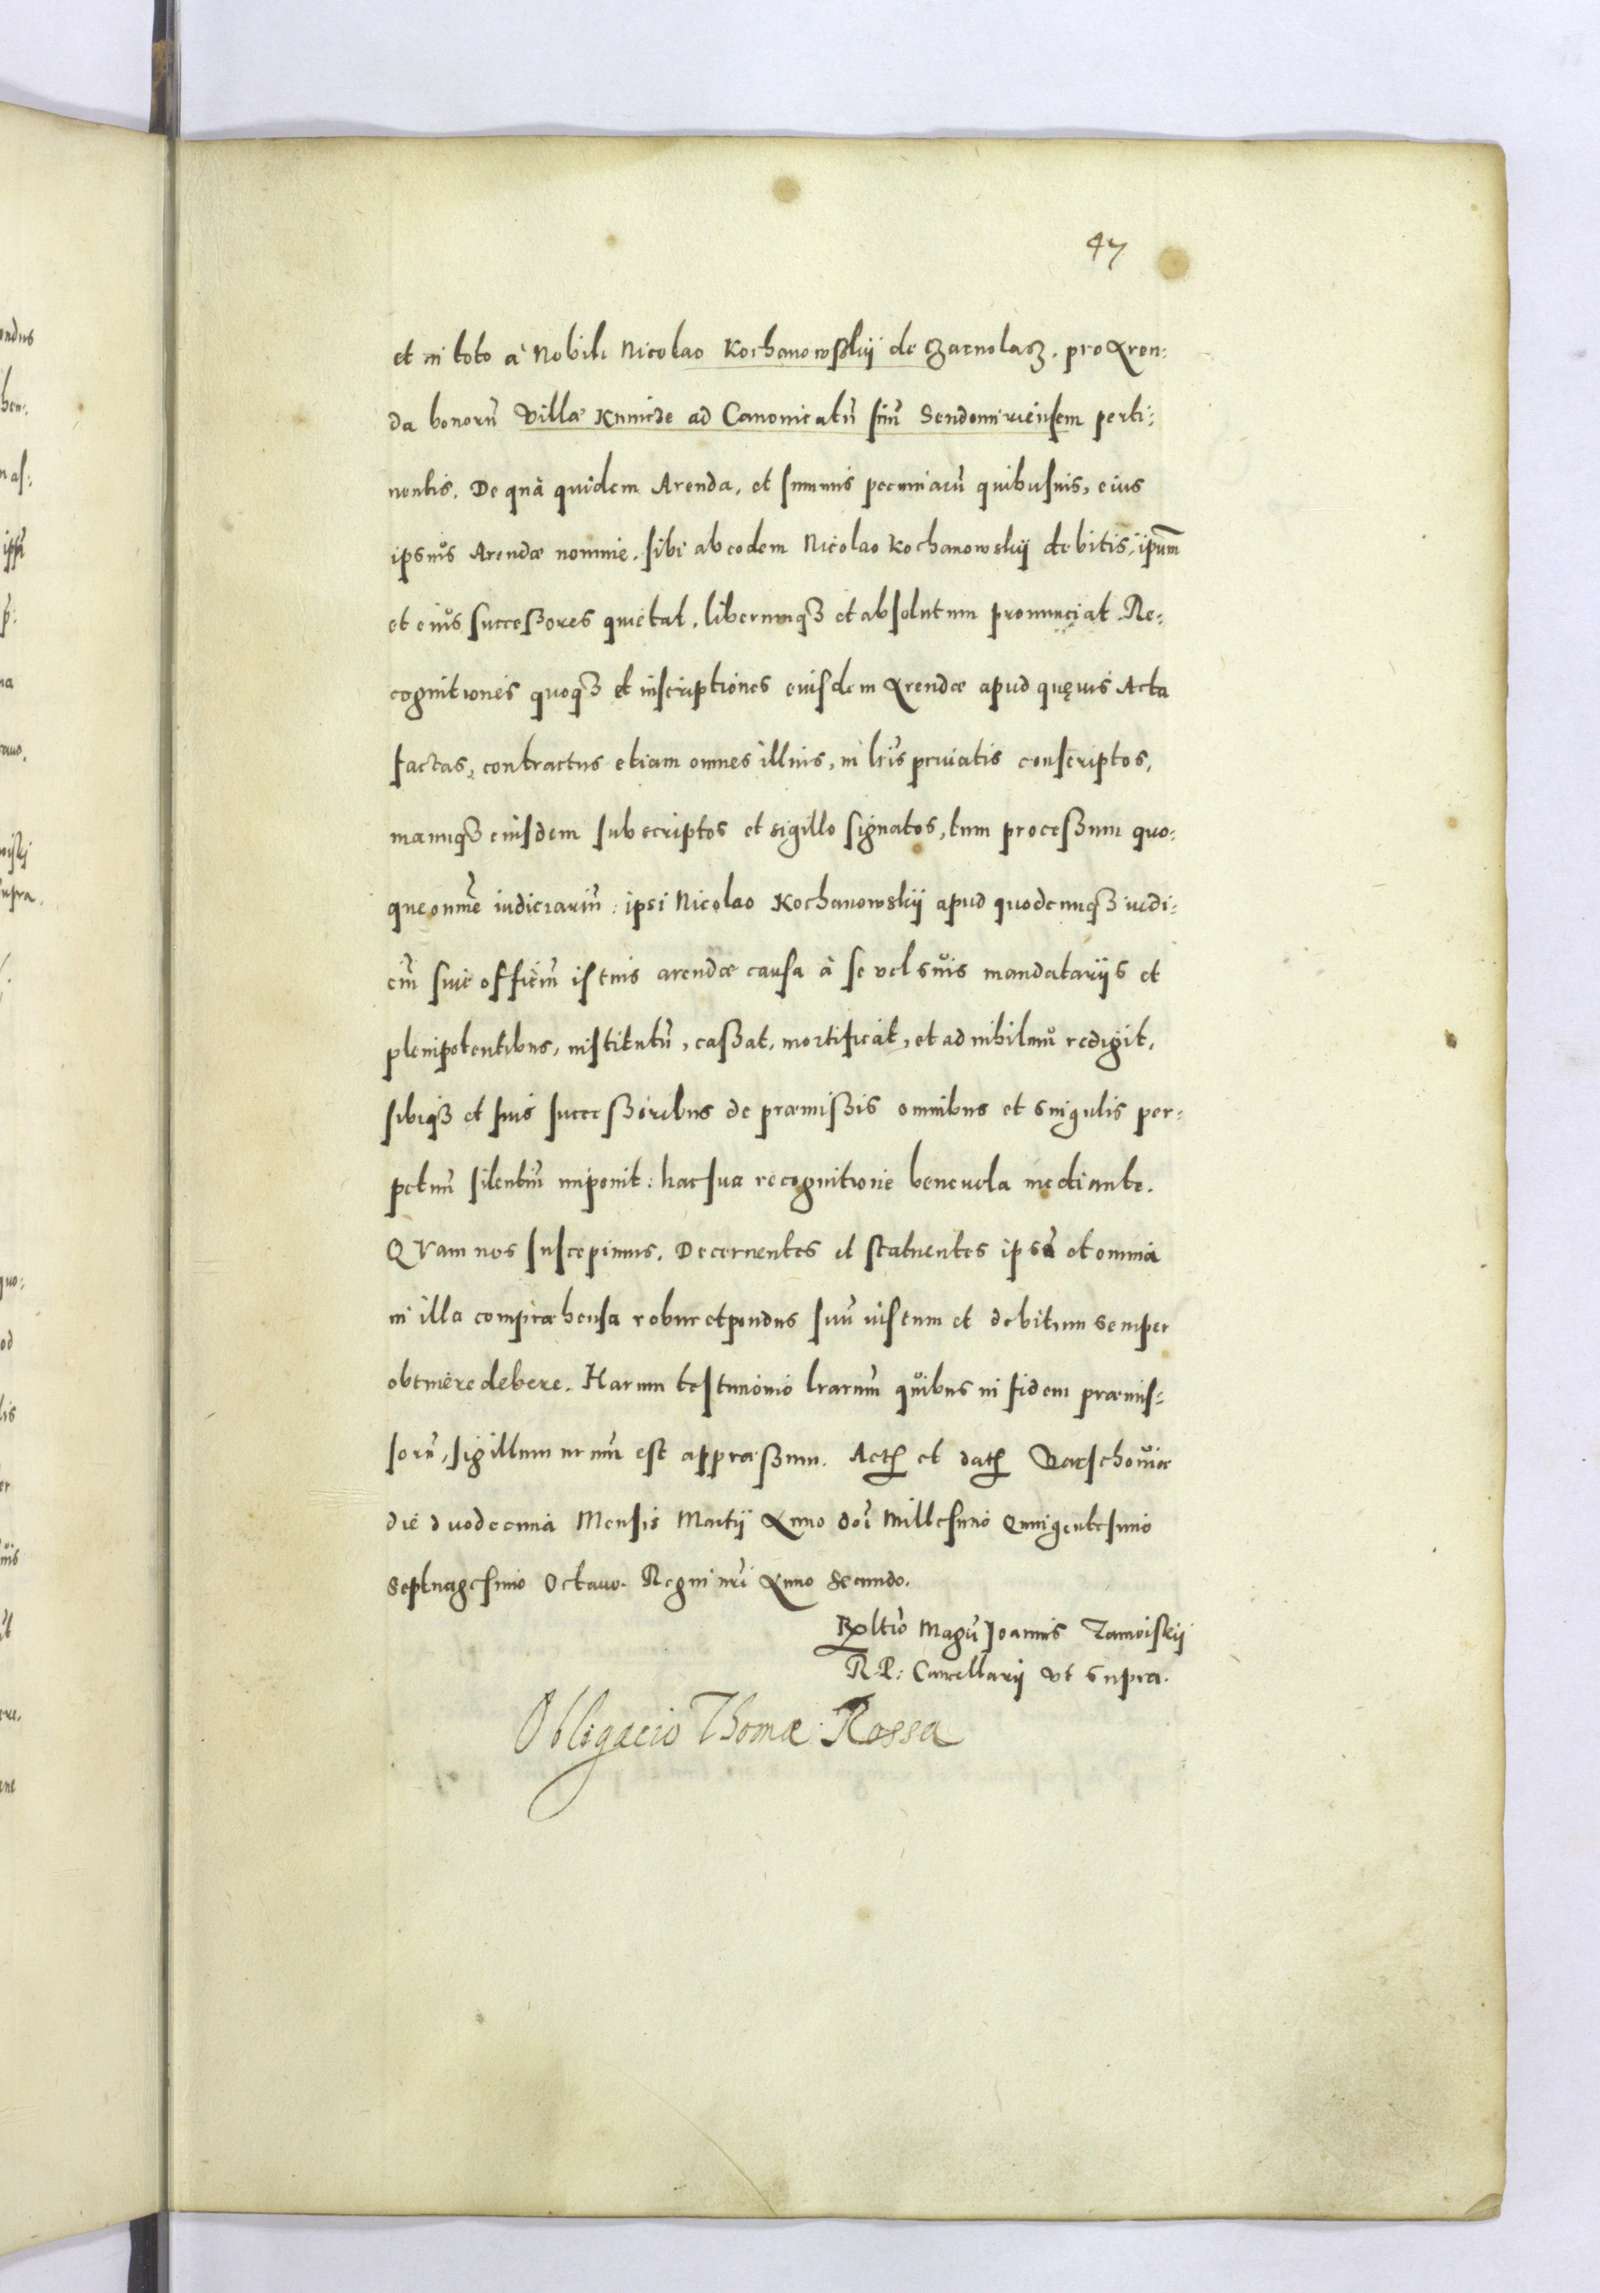 47
et in toto à Nobili Nicolao Kochanowskij de Czarnolacz. pro Aren:
da bonorū Villæ Kunicze ad Canonicatū suū Sendomiriensem perti:
nentis. De quà quidem Arenda, et summis pecuniarū quibusuis, eius
ipsius Arendæ nomine. sibi ab eodem Nicolao Kochanowskij debitis, ipsum
et eius successores quietat, liberumqȝ et absolutum pronunciat. Re:
cognitiones quoqȝ et inscriptiones eiusdem Arendæ apud quęuis Acta
factas, contractus etiam omnes illius, in lr̄is priuatis conscriptos,
manuqȝ eiusdem subscriptos et sigillo signatos, tum processum quo:
que omnē iudiciariū: ipsi Nicolao Kochanowskij apud quodcunqȝ iudi:
ciū siue officiū istius arendæ causa à se vel suis mandatarijs et
plenipotentibus, institutū, cassat, mortificat, et ad nihilum redigit,
sibiqȝ et suis successoribus de præmissis omnibus et singulis per:
petuū silentiū imponit: hac sua recognitione beneuola mediante.
QVam nos suscepimus. Decernentes et statuentes ipsā et omnia
in illa compræhensa robur et pondus suū iustum et debitum semper
obtinere debere. Harum testimonio lr̄arum quibus in fidem præmis:
sorū, sigillum nr̄um est appræssum. Actȝ et datȝ Varschouiæ
die duodecima Mensis Martij Anno doī Millesimo Quingentesimo
Septuagesimo Octauo. Regni nr̄i Anno Secundo.
Rxltio Magci Joannis Zamoiskij
R. P: Cancellarij vt supra.
Obligacio Thomæ Rossa